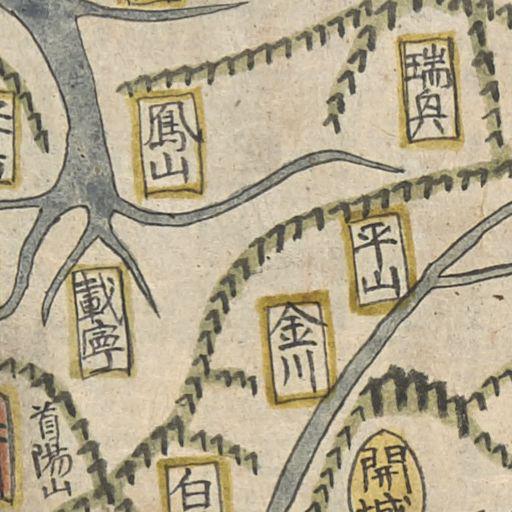 瑞興
鳳山
平山
載寧
金川
首陽山
開城
白